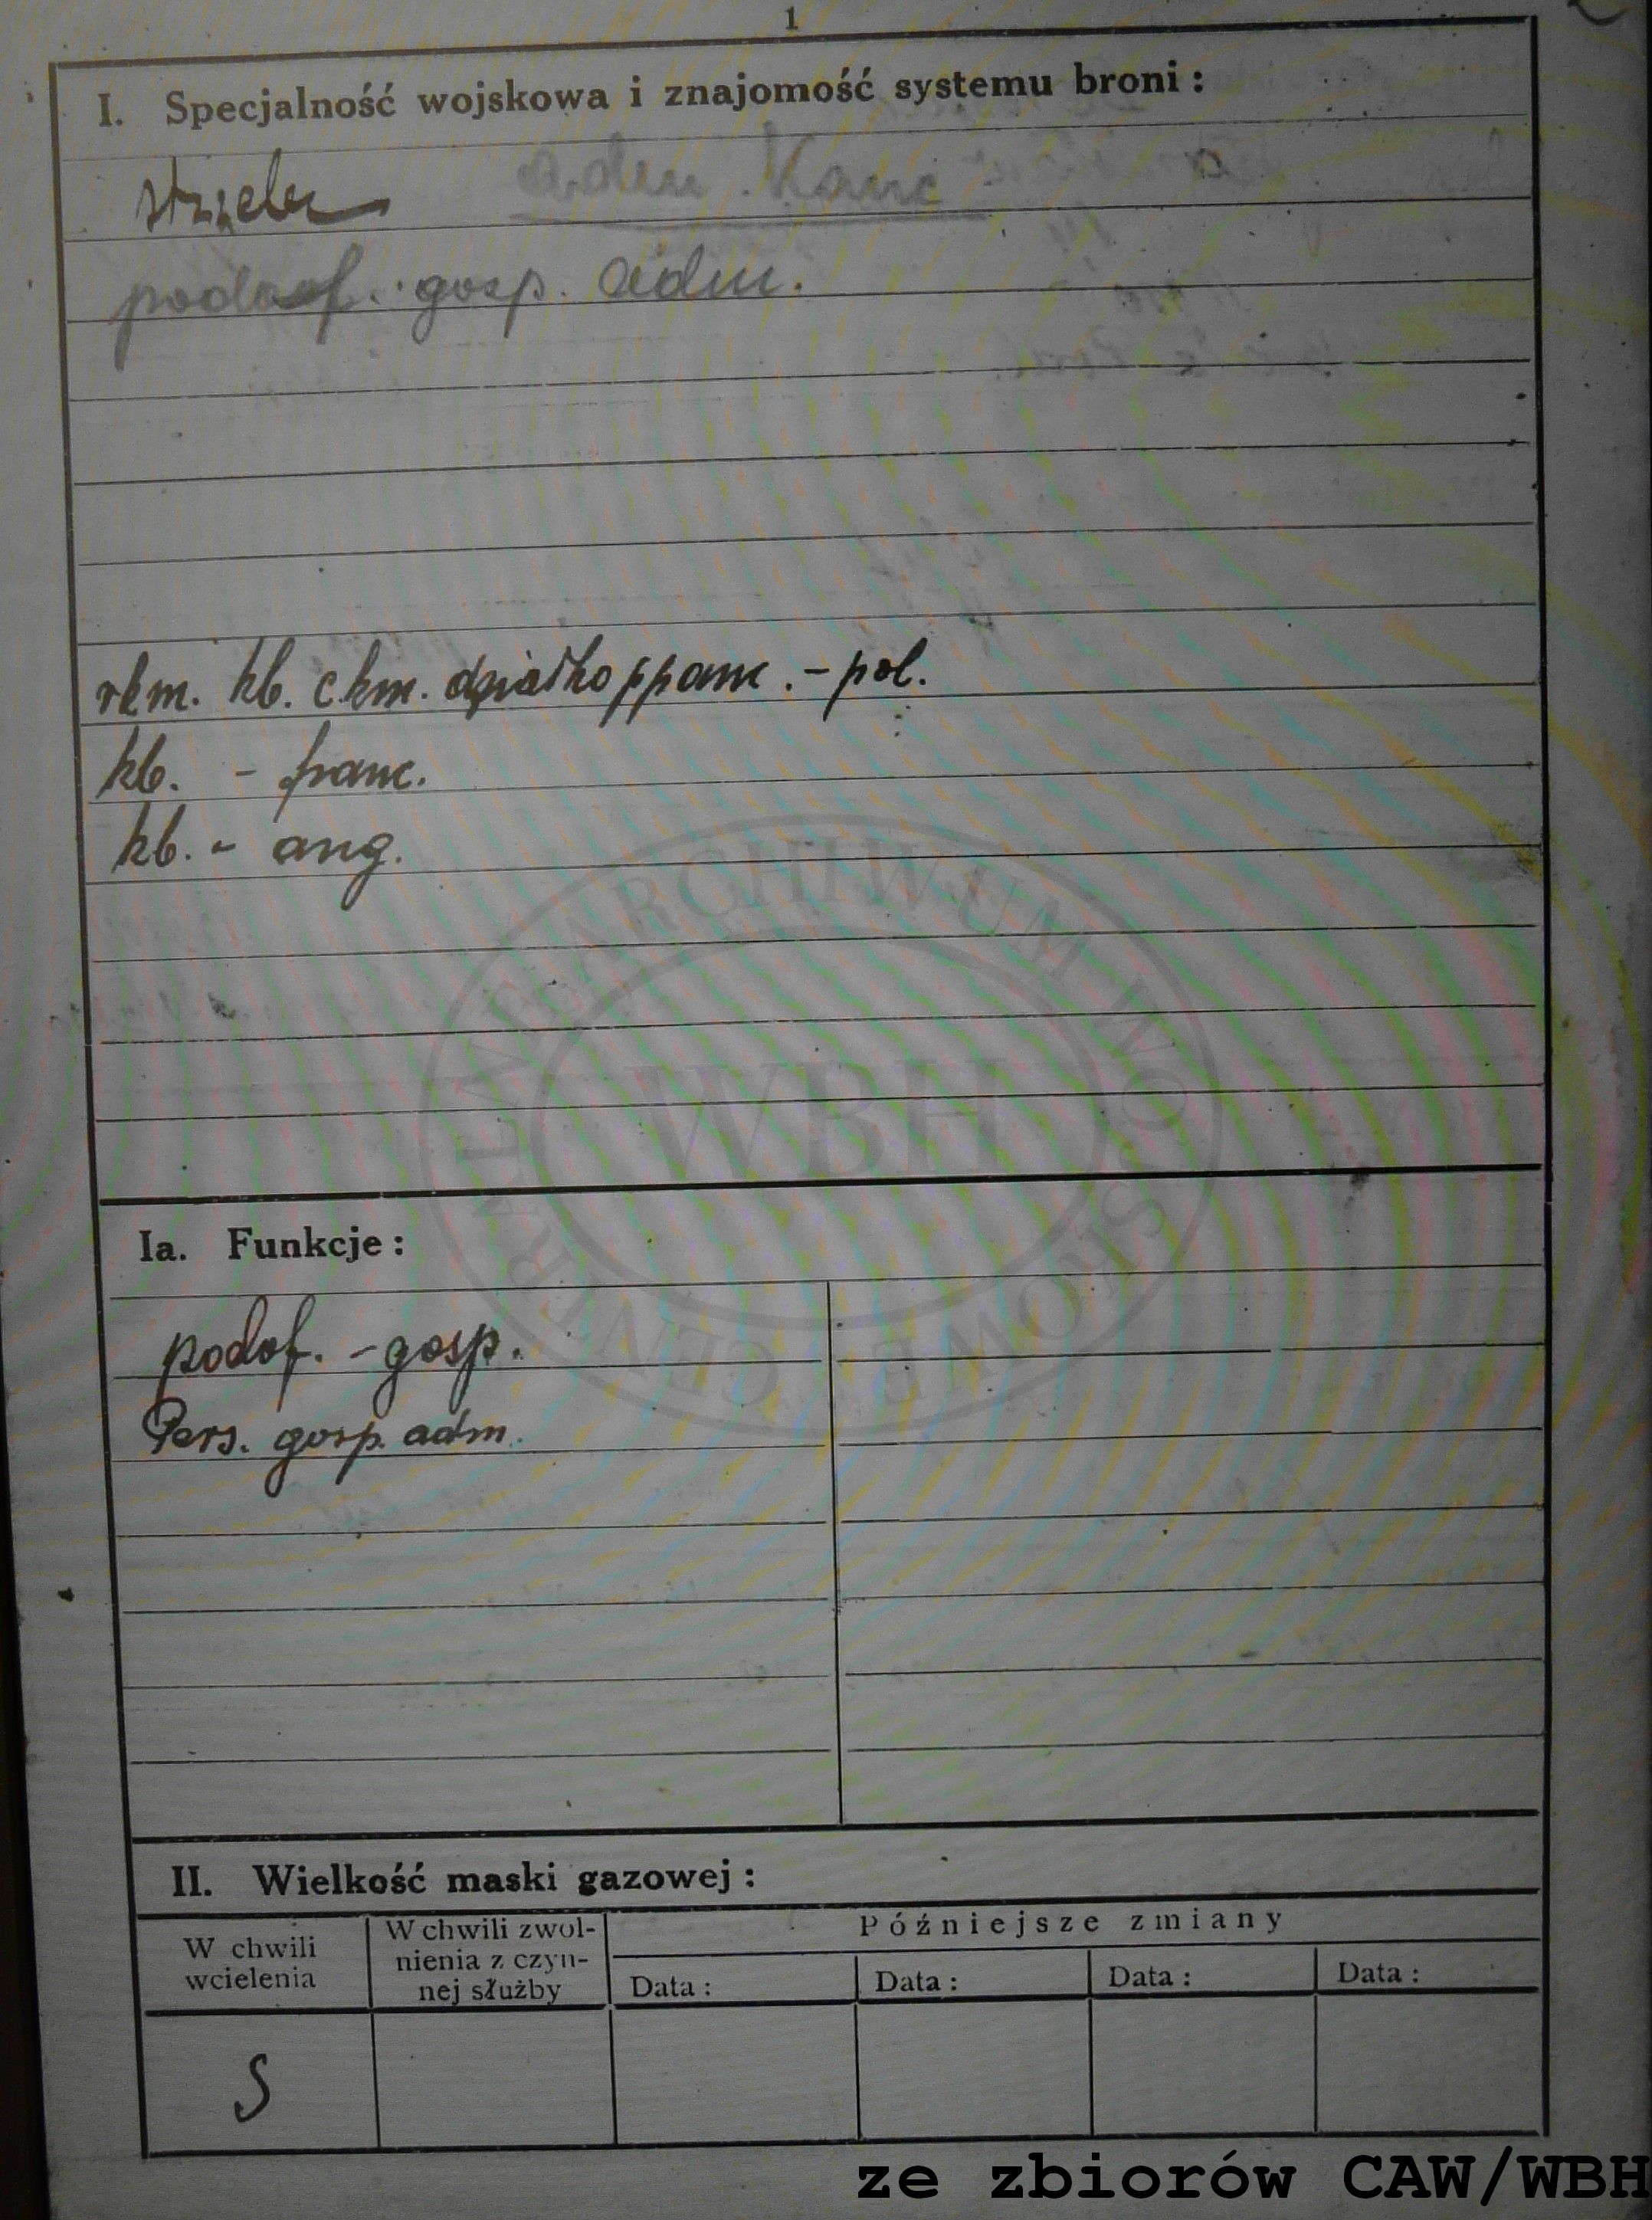 1
I. Specjalność wojskowa i znajomość systemu broni :
strzelec adm. Kanc
podof. gosp. adm.
rkm. kb. c.km. działko ppanc. - pol.
kb. - franc.
kb. - ang.
Ia. Funkcje :
podof. - gosp.
Pers. gosp. adm.
II. Wielkość maski gazowej :
W chwili wcielenia
W chwili zwol-
nienia z czyn-
nej służby
Późniejsze zmiany
Data : Data : Data : Data :
S
CENTRALNE ARCHIWUM WOJSKOWE
WBH
ze zbiorów CAW/WBH